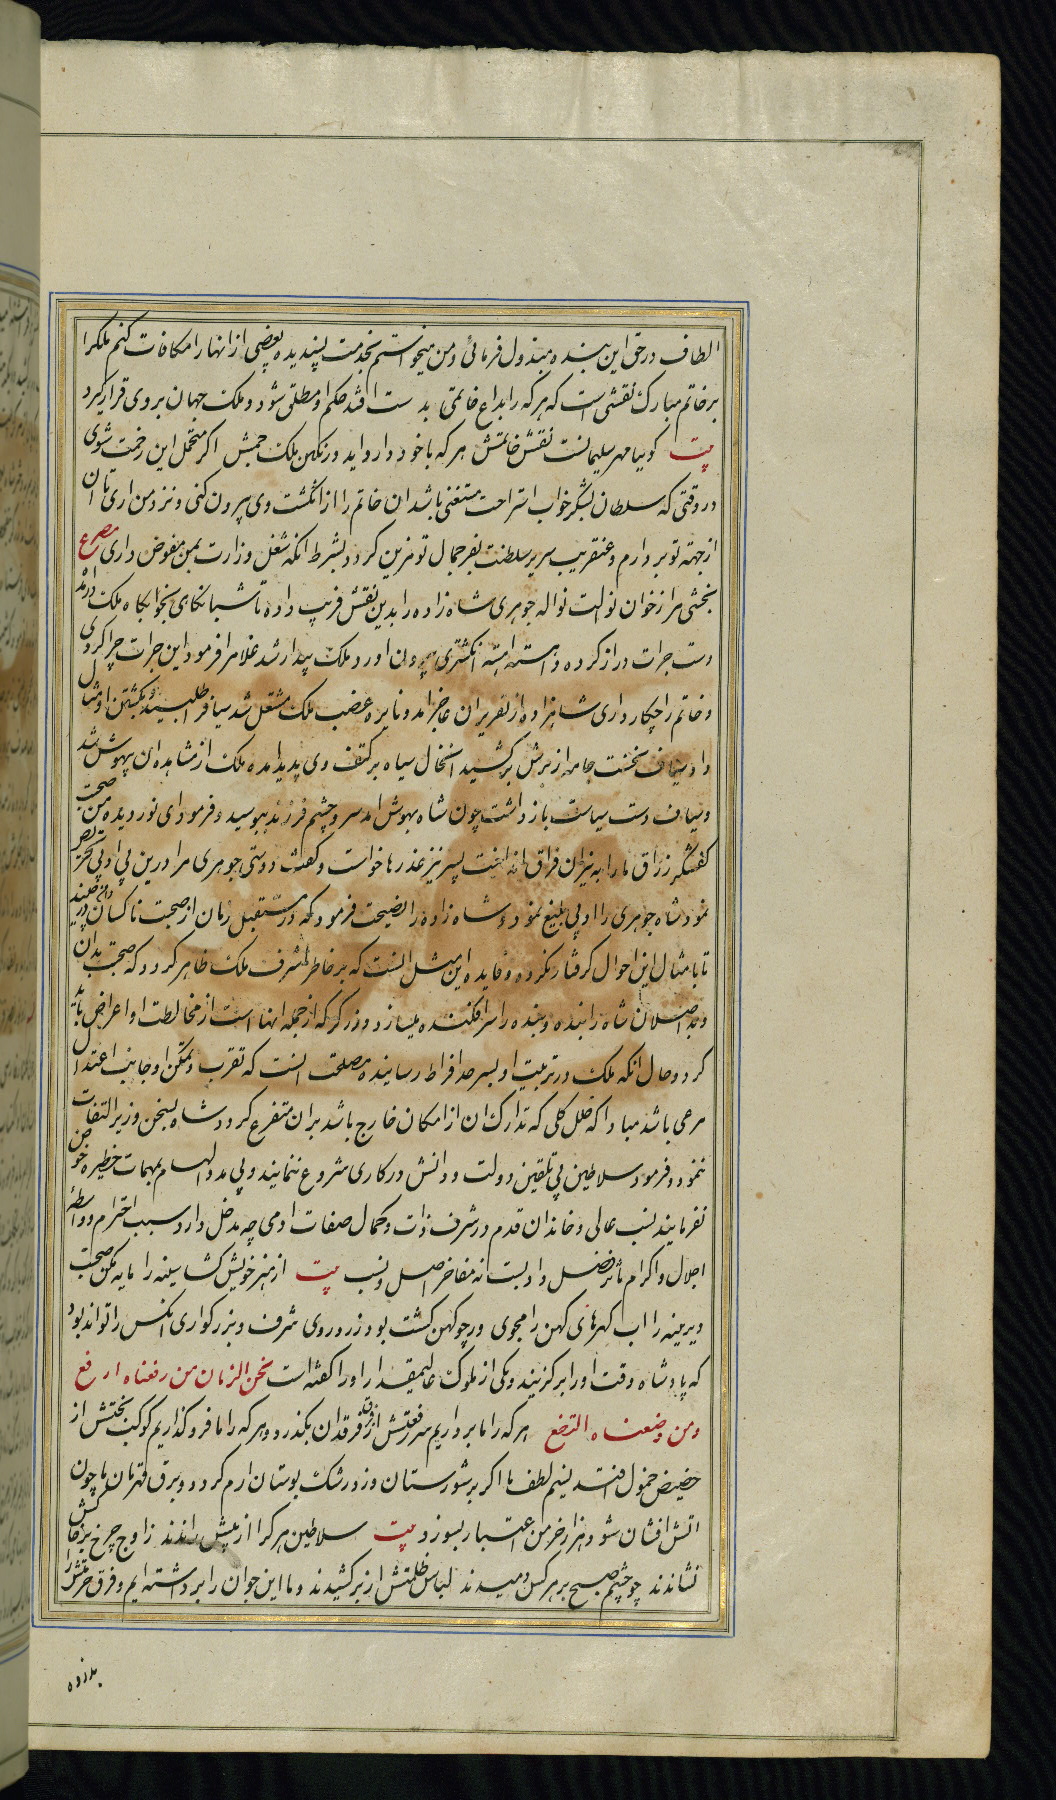 الطاف در حق این بنده مبذول فرمائی و من میخواستم بخدمت پسندیده بعضی از انها را مکافات کنم ملک را
بر خاتم مبارک نقشی است که هر که را بداع خاتمی بدست افتد حکم او مطلق شود و ملک جهان بر وی قرار کیرد
بیت کوییا مهر سلیمانست نقش خاتمش هر که با خود دارد اید در نکین ملک جمش اکر متحمل این زحمت شوی
در وقتی که سلطان لشکر خواب استراحت مستغنی باشد ان خاتم را از انکشت وی بیرون کنی و نزد من اری تا ان
از جهته تو بردارم و عنقریب سریر سلطنت بفر جمال تو مزین کردد بشرط انکه شغل وزارت بمن مفوض داری مصرع
بخشی مرا ز خوان نوالت نواله جوهری شاه زاده را بدین نقش فریب داده تا شبانکاهی بخوابکاه ملک در امد
دست جرات دراز کرده و اهسته اهسته انکشتری بیرون اورد ملک بیدار شد غلامرا فرمود این جرات چرا کردی
و خاتم را چکار داری شاهزاده از تقریر ان عاجز امد و نایره غضب ملک مشتعل شد سیاف را طلبیده و بکشتن او مثال
داد سیاف نخست جامه از برش برکشید ان خال سیاه بر کتف وی پدید امده ملک از مشاهده ان بیهوش شد
و سیاف دست سیاست باز داشت چون شاه بهوش امد سر و چشم فرزند ببوسید و فرمود ای نور دیده من صحبت
کفشکر زراق ما را به نیران فراق انداخت پسر نیز عذرها خواست و کفت دوستی جوهری مرا درین بی ادبی تحریص
نمود شاه جوهری را ادبی بلیغ نمود و شاه زاده را نصیحت فرمود که در مستقبل زمان از صحبت ناکسان
تا بامثال این احوال کرفتار نکرده و فایده این مثل انست که بر خاطر اشرف ملک ظاهر کردد که صحبت بدان
و بد اصلان شاه را بنده و بنده را سرافکنده میسازد و زرکر که از جمله انها است از مخالطت او اعراض باید
کرد و حال انکه ملک در تربیت او بسرحد افراط رسانیده مصلحت انست که تقرب و تمکن او جانب اعتدال
مرعی باشد مبادا که خلل کلی که تدارک ان از امکان خارج باشد بران متفرع کردد شاه بسخن وزیر التفات
ننمود و فرمود سلاطین بی تلقین دولت و دانش در کاری شروع ننمایند و بی مدد الهام بمهمات خطیره خوض
نفرمایند نسب عالی و خاندان قدم در شرف ذات و کمال صفات ادمی چه مدخل دارد سبب احترام و واسطهٔ
اجلال و اکرام ماثر فضل و ادبست نه مفاخر اصل و نسب بیت از هنر خویش کشا سینه را مایه مکن صحبت
دیرینه را اب کهرهای کهن را مجوی ور چو کهن کشت بود زرد روی شرف و بزرکواری انکس را تواند بود
که پادشاه وقت او را برکزیند و یکی از ملوک عالیمقدار اورا کفته است نحن الزمان من رفعناه ارفع
ومن وضعناه اتضع هر که را ما برداریم سر رفعتش از فرق فرقدان بکذرد و هر که را ما فرو کذاریم کوکب بختش از
حضیض خمول افتد نسیم لطف ما اکر بر شورستان وزد رشک بوستان ارم کردد و برق قهرمان ما چون
اتش افشان شود هزار خرمن اعتبار بسوزد بیت سلاطین هر کرا از پیش راندند ز اوج چرخ بر خاکش
نشاندند چو چشم صبح بر هر کس دمیدند لباس ظلمتش از بر کشیدند و ما این جوان را برداشته ایم و فرق حرمتش را
بدزده